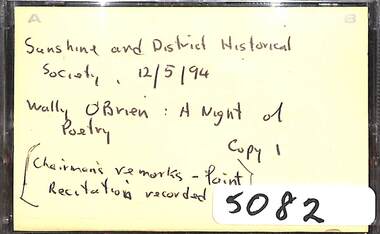 A B
Sunshine and District Historical
Society, 12/5/94
Wally O'Brien : A Night of
Poetry
Copy 1
(Chairman's remarks - Point)
Recitation recorded
5082